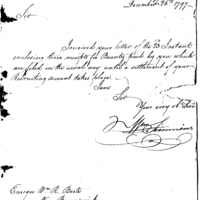 December 26th 1797
Sir
I received your letter of the 23 Instant
enclosing three receipts for Bounty paid by you which
are filed in the usual way until a settlement of your
Recruiting account takes place.
I am
Sir
Your very ob Servt
Wm Simmons
Ensign Wm R. Boote
New Brunswick